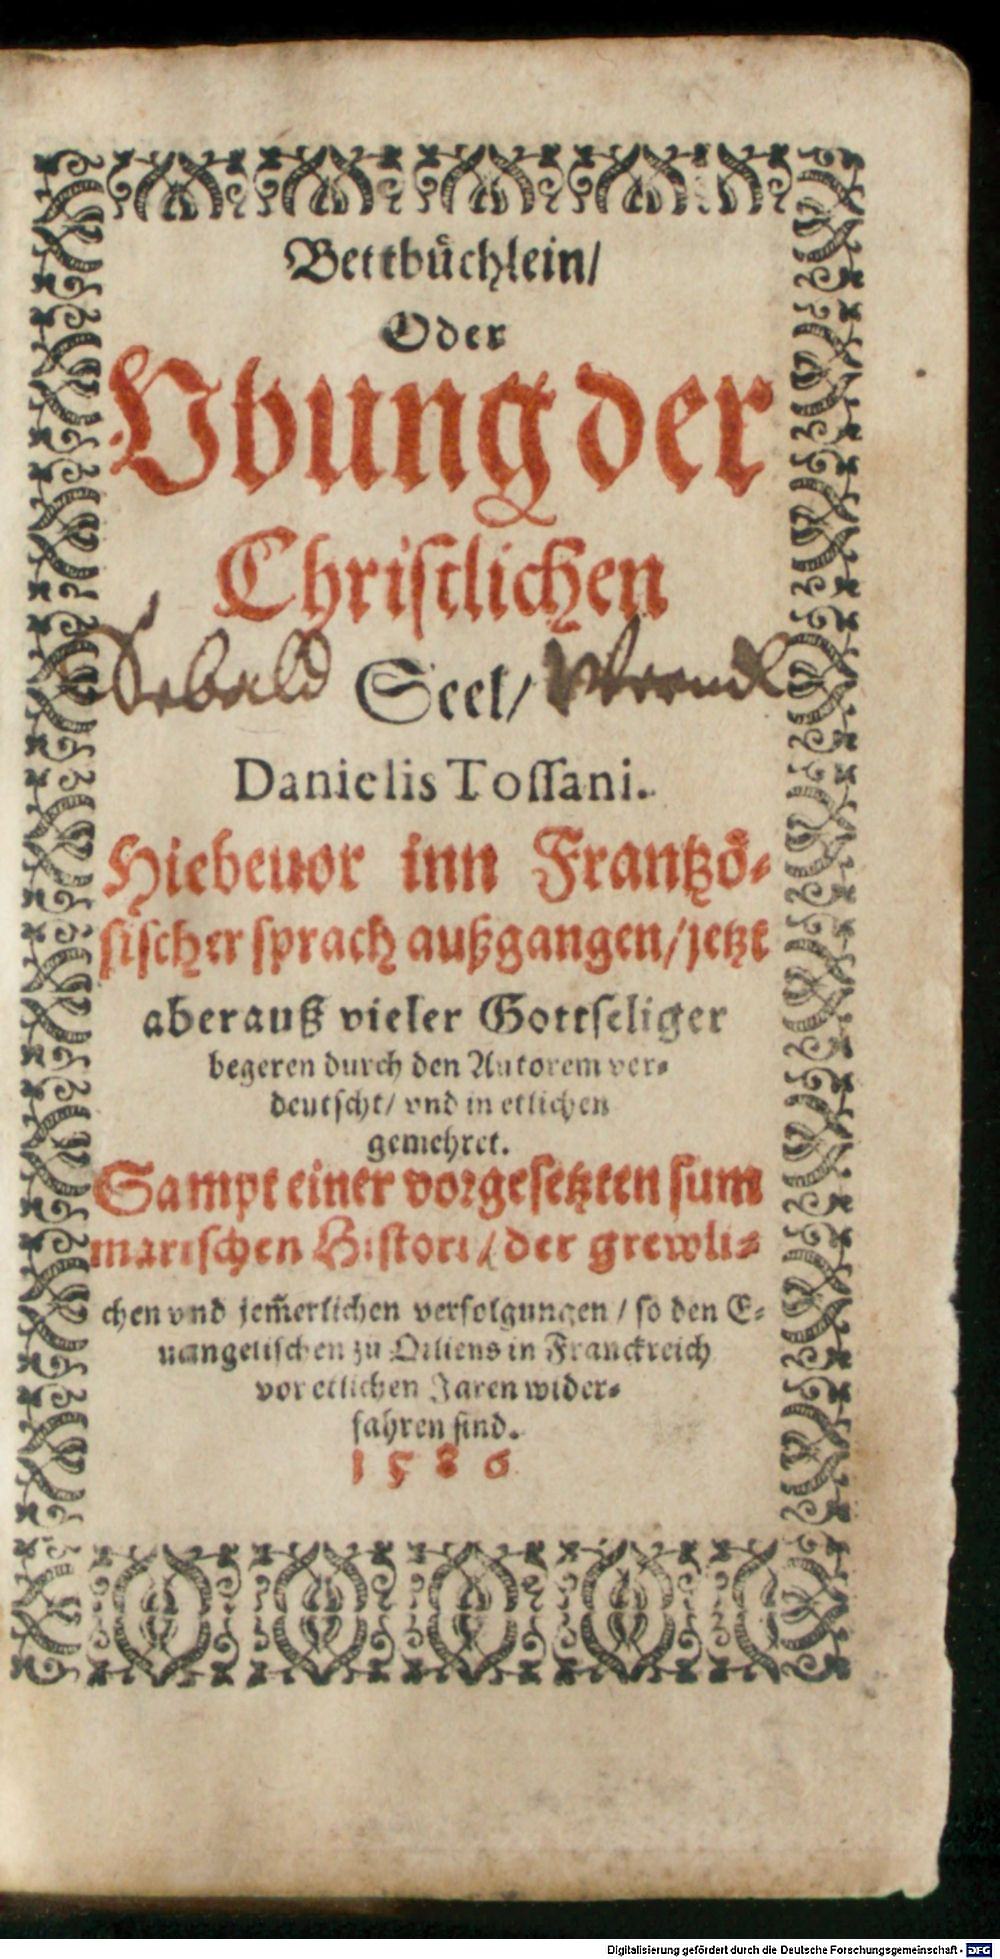 Bettbuͤchlein/
Oder
Vbung der
Chriſtlichen
Sebald Seel/
Danielis Toſſani.
Hiebeuor inn Frantzoͤ⸗
ſiſcher ſprach außgangen/ jetzt
aber auß vieler Gottſeliger
begeren durch den Autorem ver⸗
deutſcht/ vnd in etlichen
gemehret.
Sampt einer vorgeſetzten ſum
mariſchen Hiſtori/ der grewli⸗
chen vnd jem̃erlichen verfolgungen/ ſo den E⸗
uangeliſchen zu Orliens in Franckreich
vor etlichen Jaren wider⸗
fahren ſind.
1586
Digitalisierung gefördert durch die Deutsche Forschungsgemeinschaft - DFG